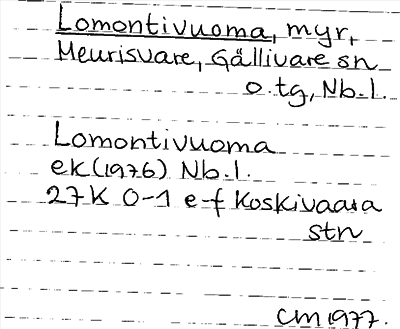 Lomontivuoma, myr,
Meurisvare, Gällivare sn
o. tg, Nb.l.
Lomontivuoma
ek(1976) Nb.l.
27K 0-1 e-f Koskivaara
stn
CM 1977.